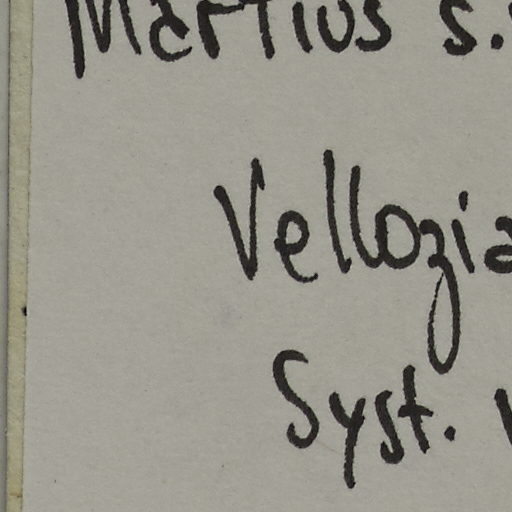 Martius s.
Vellozia
Syst.